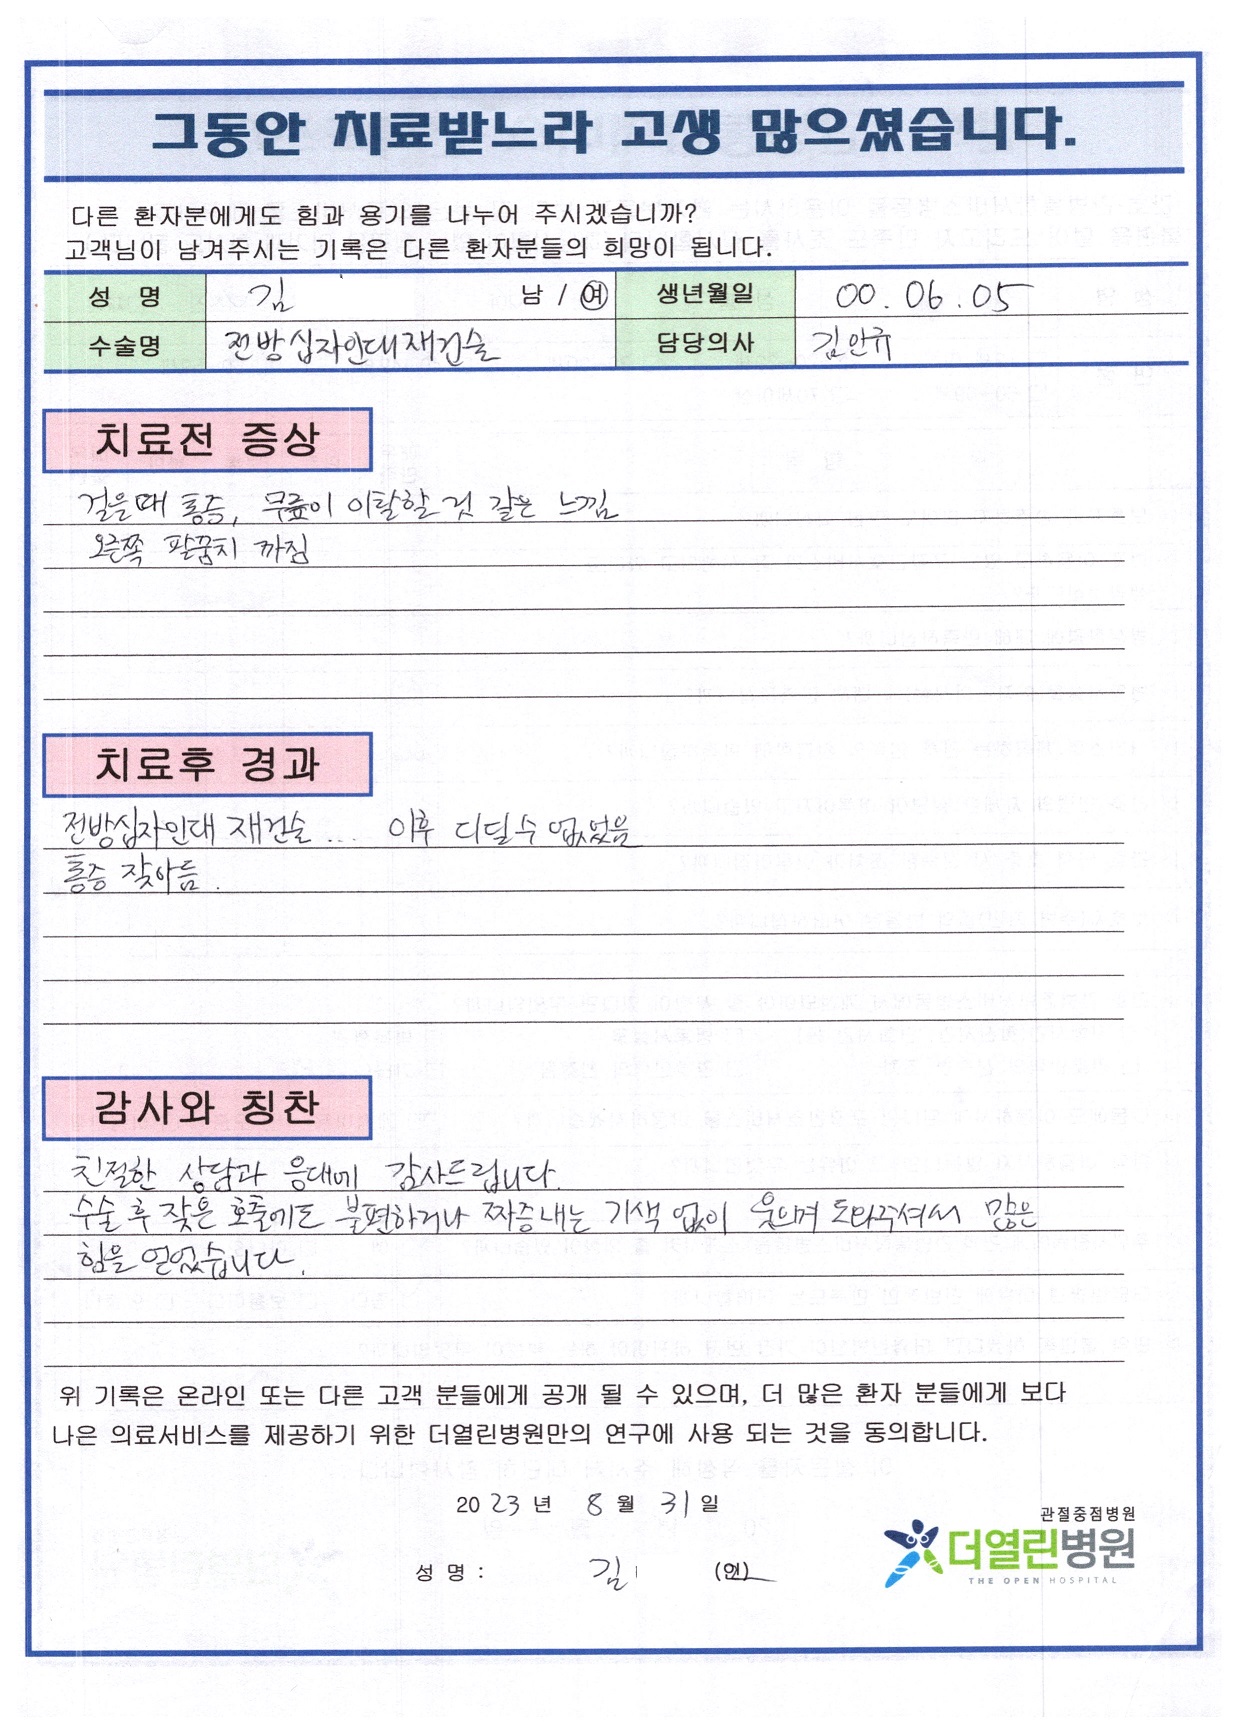 그동안 치료받느라 고생 많으셨습니다.
다른 환자분에게도 힘과 용기를 나누어 주시겠습니까?
고객님이 남겨주시는 기록은 다른 환자분들의 희망이 됩니다.
성 명 김 남 / 여 생년월일 00.06.05
수술명 전방십자인대재건술 담당의사 김안규
치료전 증상
걸을때 통증, 무릎이 이탈할 것 같은 느낌
오른쪽 팔꿈치 까짐
치료후 경과
전방십자인대 재건술... 이후 디딜수 없었음
통증 잦아듬.
감사와 칭찬
친절한 상담과 응대에 감사드립니다.
수술 후 잦은 호출에도 불편하거나 짜증내는 기색 없이 웃으며 도와주셔서 많은
힘을 얻었습니다.
위 기록은 온라인 또는 다른 고객 분들에게 공개 될 수 있으며, 더 많은 환자 분들에게 보다
나은 의료서비스를 제공하기 위한 더열린병원만의 연구에 사용 되는 것을 동의합니다.
2023년 8월 31일
관절중점병원
더열린병원
THE OPEN HOSPITAL
성 명 : 김 (인)